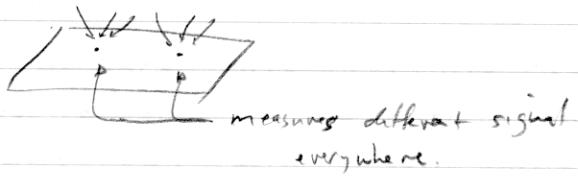 measures different signal
everywhere.